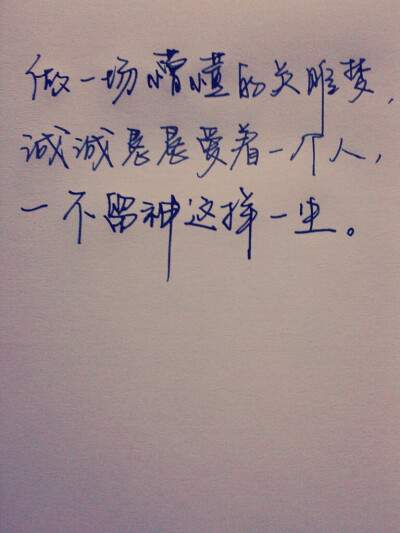 做一场懵懂的关雎梦，
诚诚恳恳爱着一个人，
一不留神这样一生。